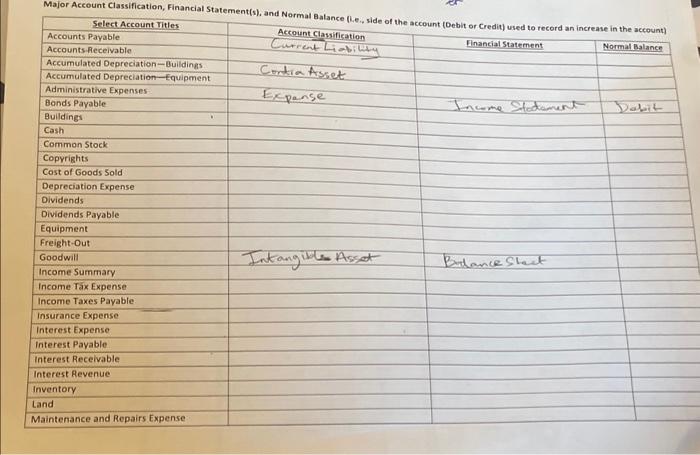 Major Account Classification, Financial Statement(s), and Normal Balance (i.e., side of the account (Debit or Credit) used to record an increase in the account)
Select Account Titles Account Classification Financial Statement Normal Balance
Accounts Payable Current Liability
Accounts Receivable
Accumulated Depreciation—Buildings Contra Asset
Accumulated Depreciation—Equipment
Administrative Expenses Expense Income Statement Debit
Bonds Payable
Buildings
Cash
Common Stock
Copyrights
Cost of Goods Sold
Depreciation Expense
Dividends
Dividends Payable
Equipment
Freight-Out
Goodwill Intangible Asset Balance Sheet
Income Summary
Income Tax Expense
Income Taxes Payable
Insurance Expense
Interest Expense
Interest Payable
Interest Receivable
Interest Revenue
Inventory
Land
Maintenance and Repairs Expense